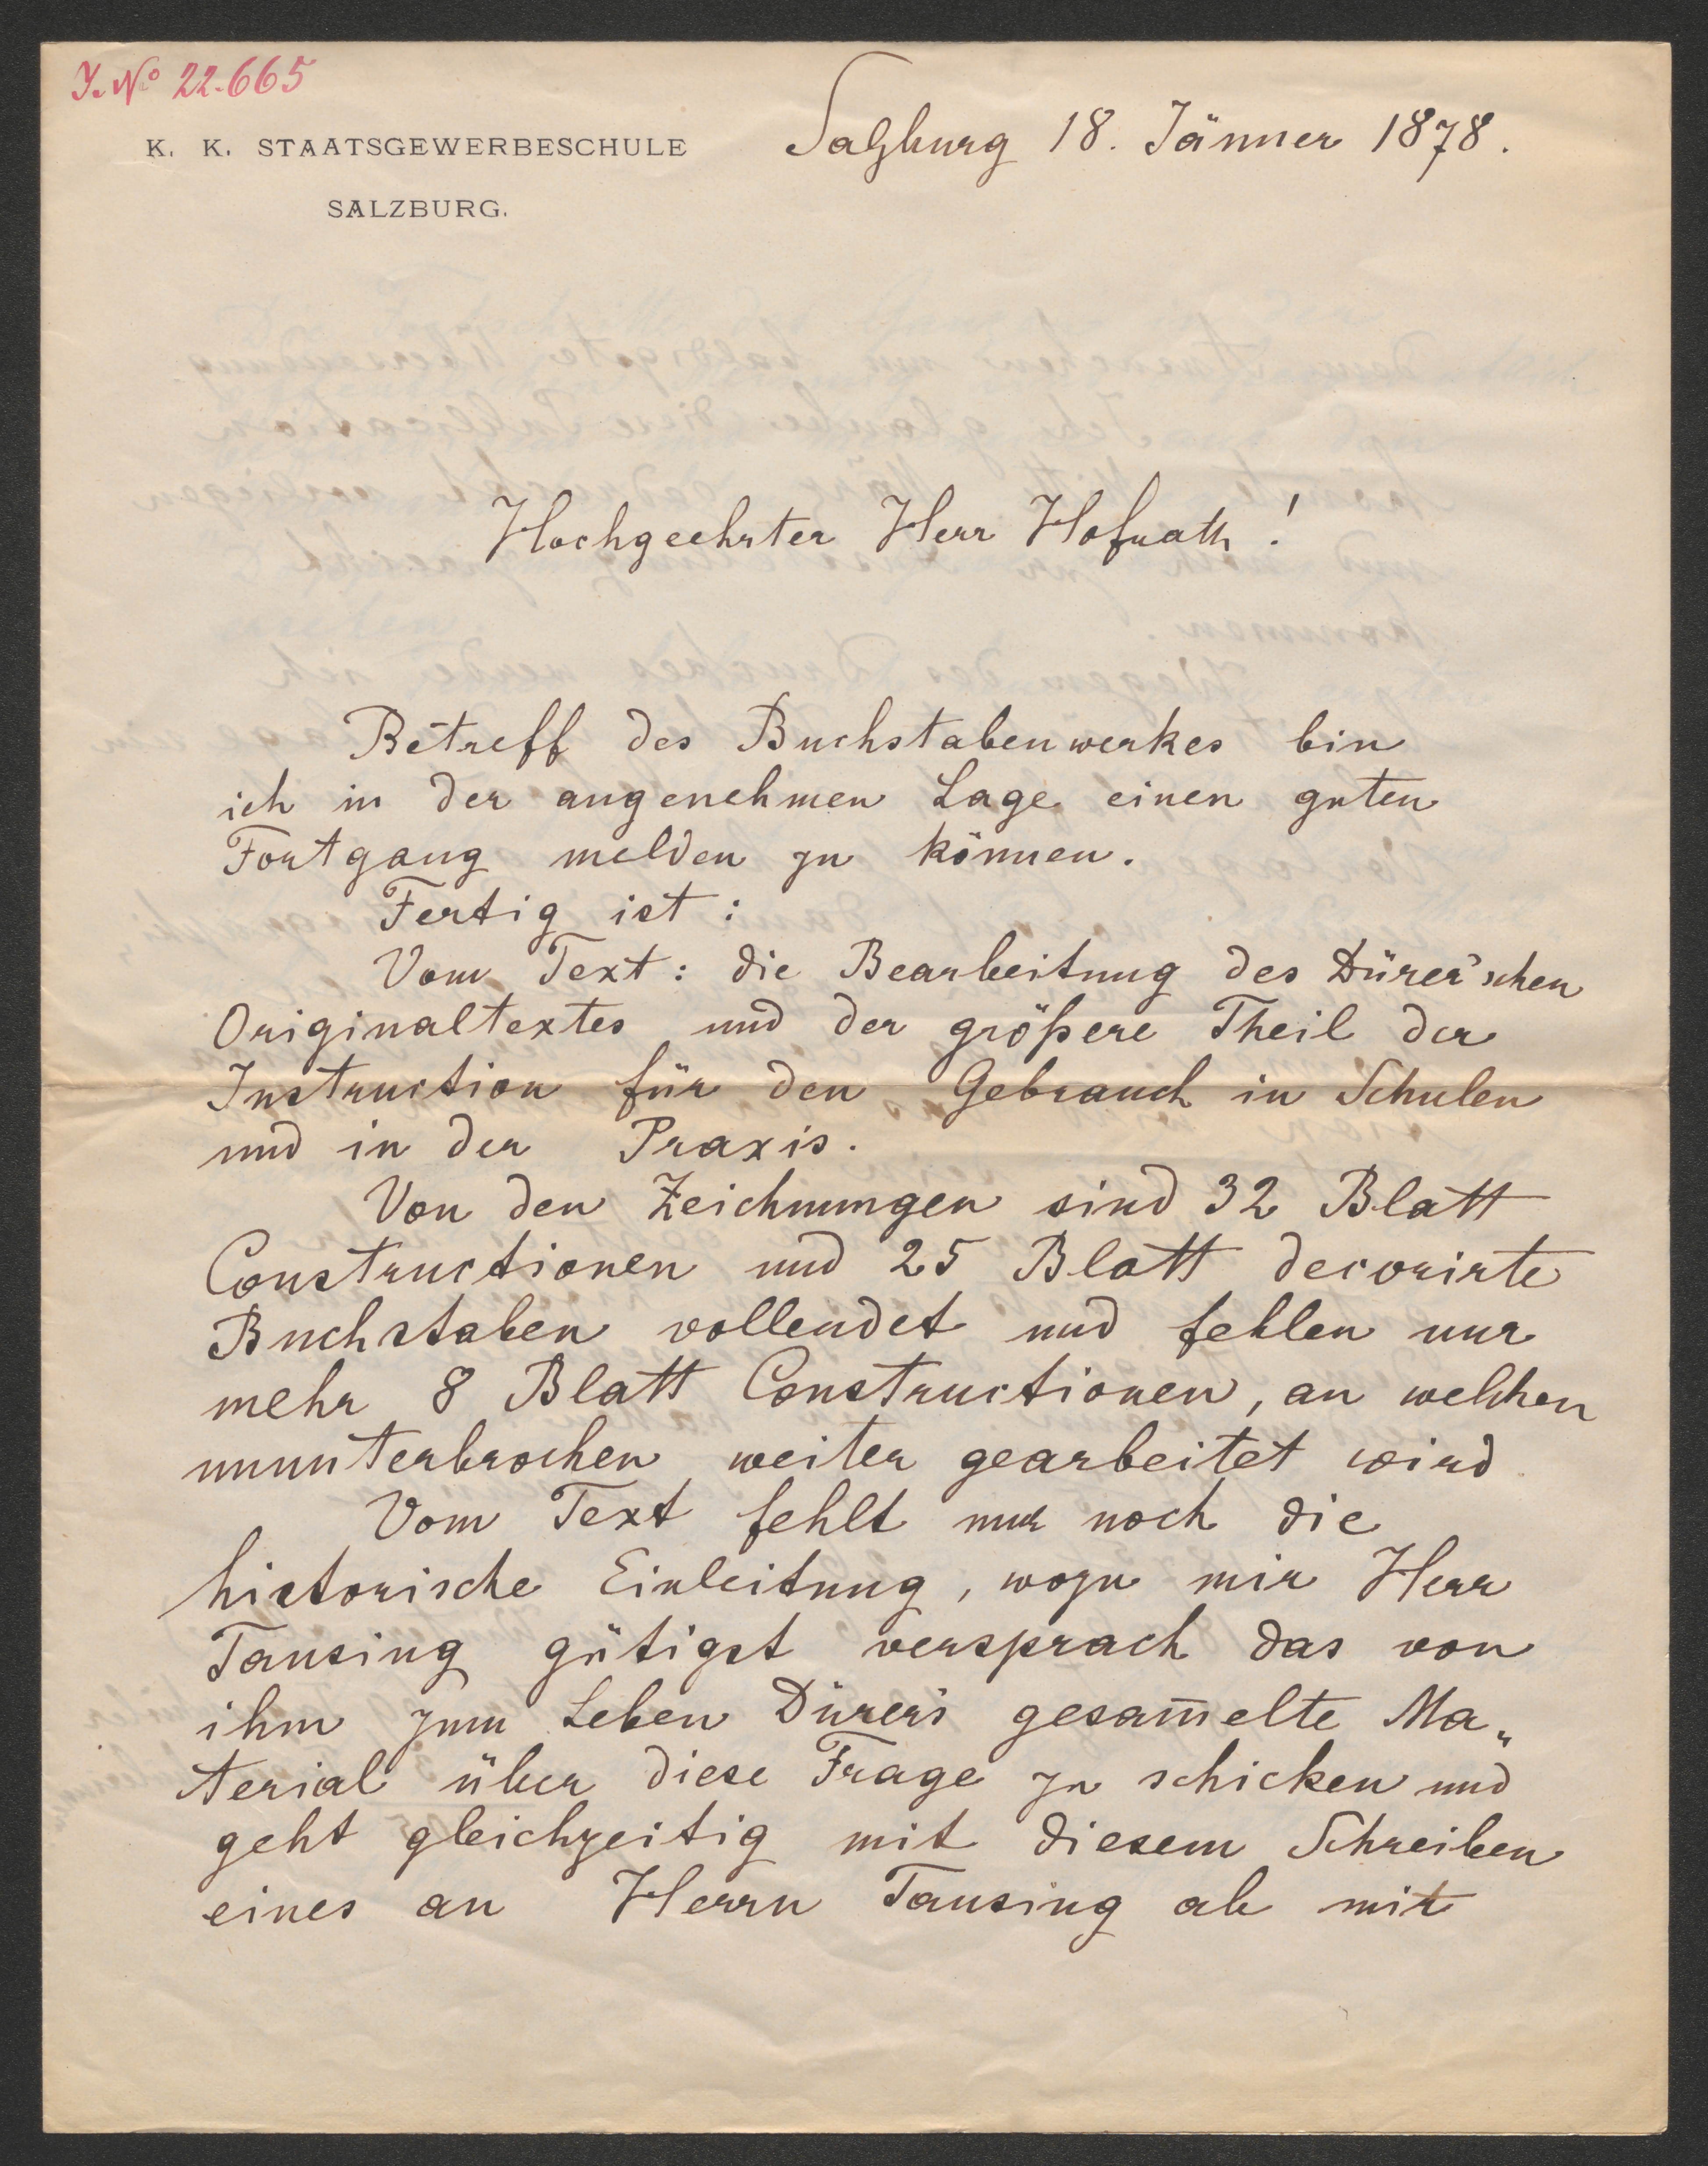 J. No 22.665
K. K. STAATSGEWERBESCHULE
SALZBURG.
Salzburg 18. Jänner 1878.
Hochgeehrter Herr Hofrath!
Betreff des Buchstabenwerkes bin
ich in der angenehmen Lage einen guten
Fortgang melden zu können.
Fertig ist:
Vom Text: die Bearbeitung des Dürer'schen
Originaltextes und der größere Theil der
Instruction für den Gebrauch in Schulen
und in der Praxis.
Von den Zeichnungen sind 32 Blatt
Constructionen und 25 Blatt decorirte
Buchstaben vollendet und fehlen nur
mehr 8 Blatt Constructionen, an welchen
ununterbrochen weiter gearbeitet wird
Vom Text fehlt nur noch die
historische Einleitung, wozu mir Herr
Tausing gütigst versprach das von
ihm zum Leben Dürer's gesam̅elte Ma„
terial über diese Frage zu schicken und
geht gleichzeitig mit diesem Schreiben
eines an Herrn Tausing ab mit